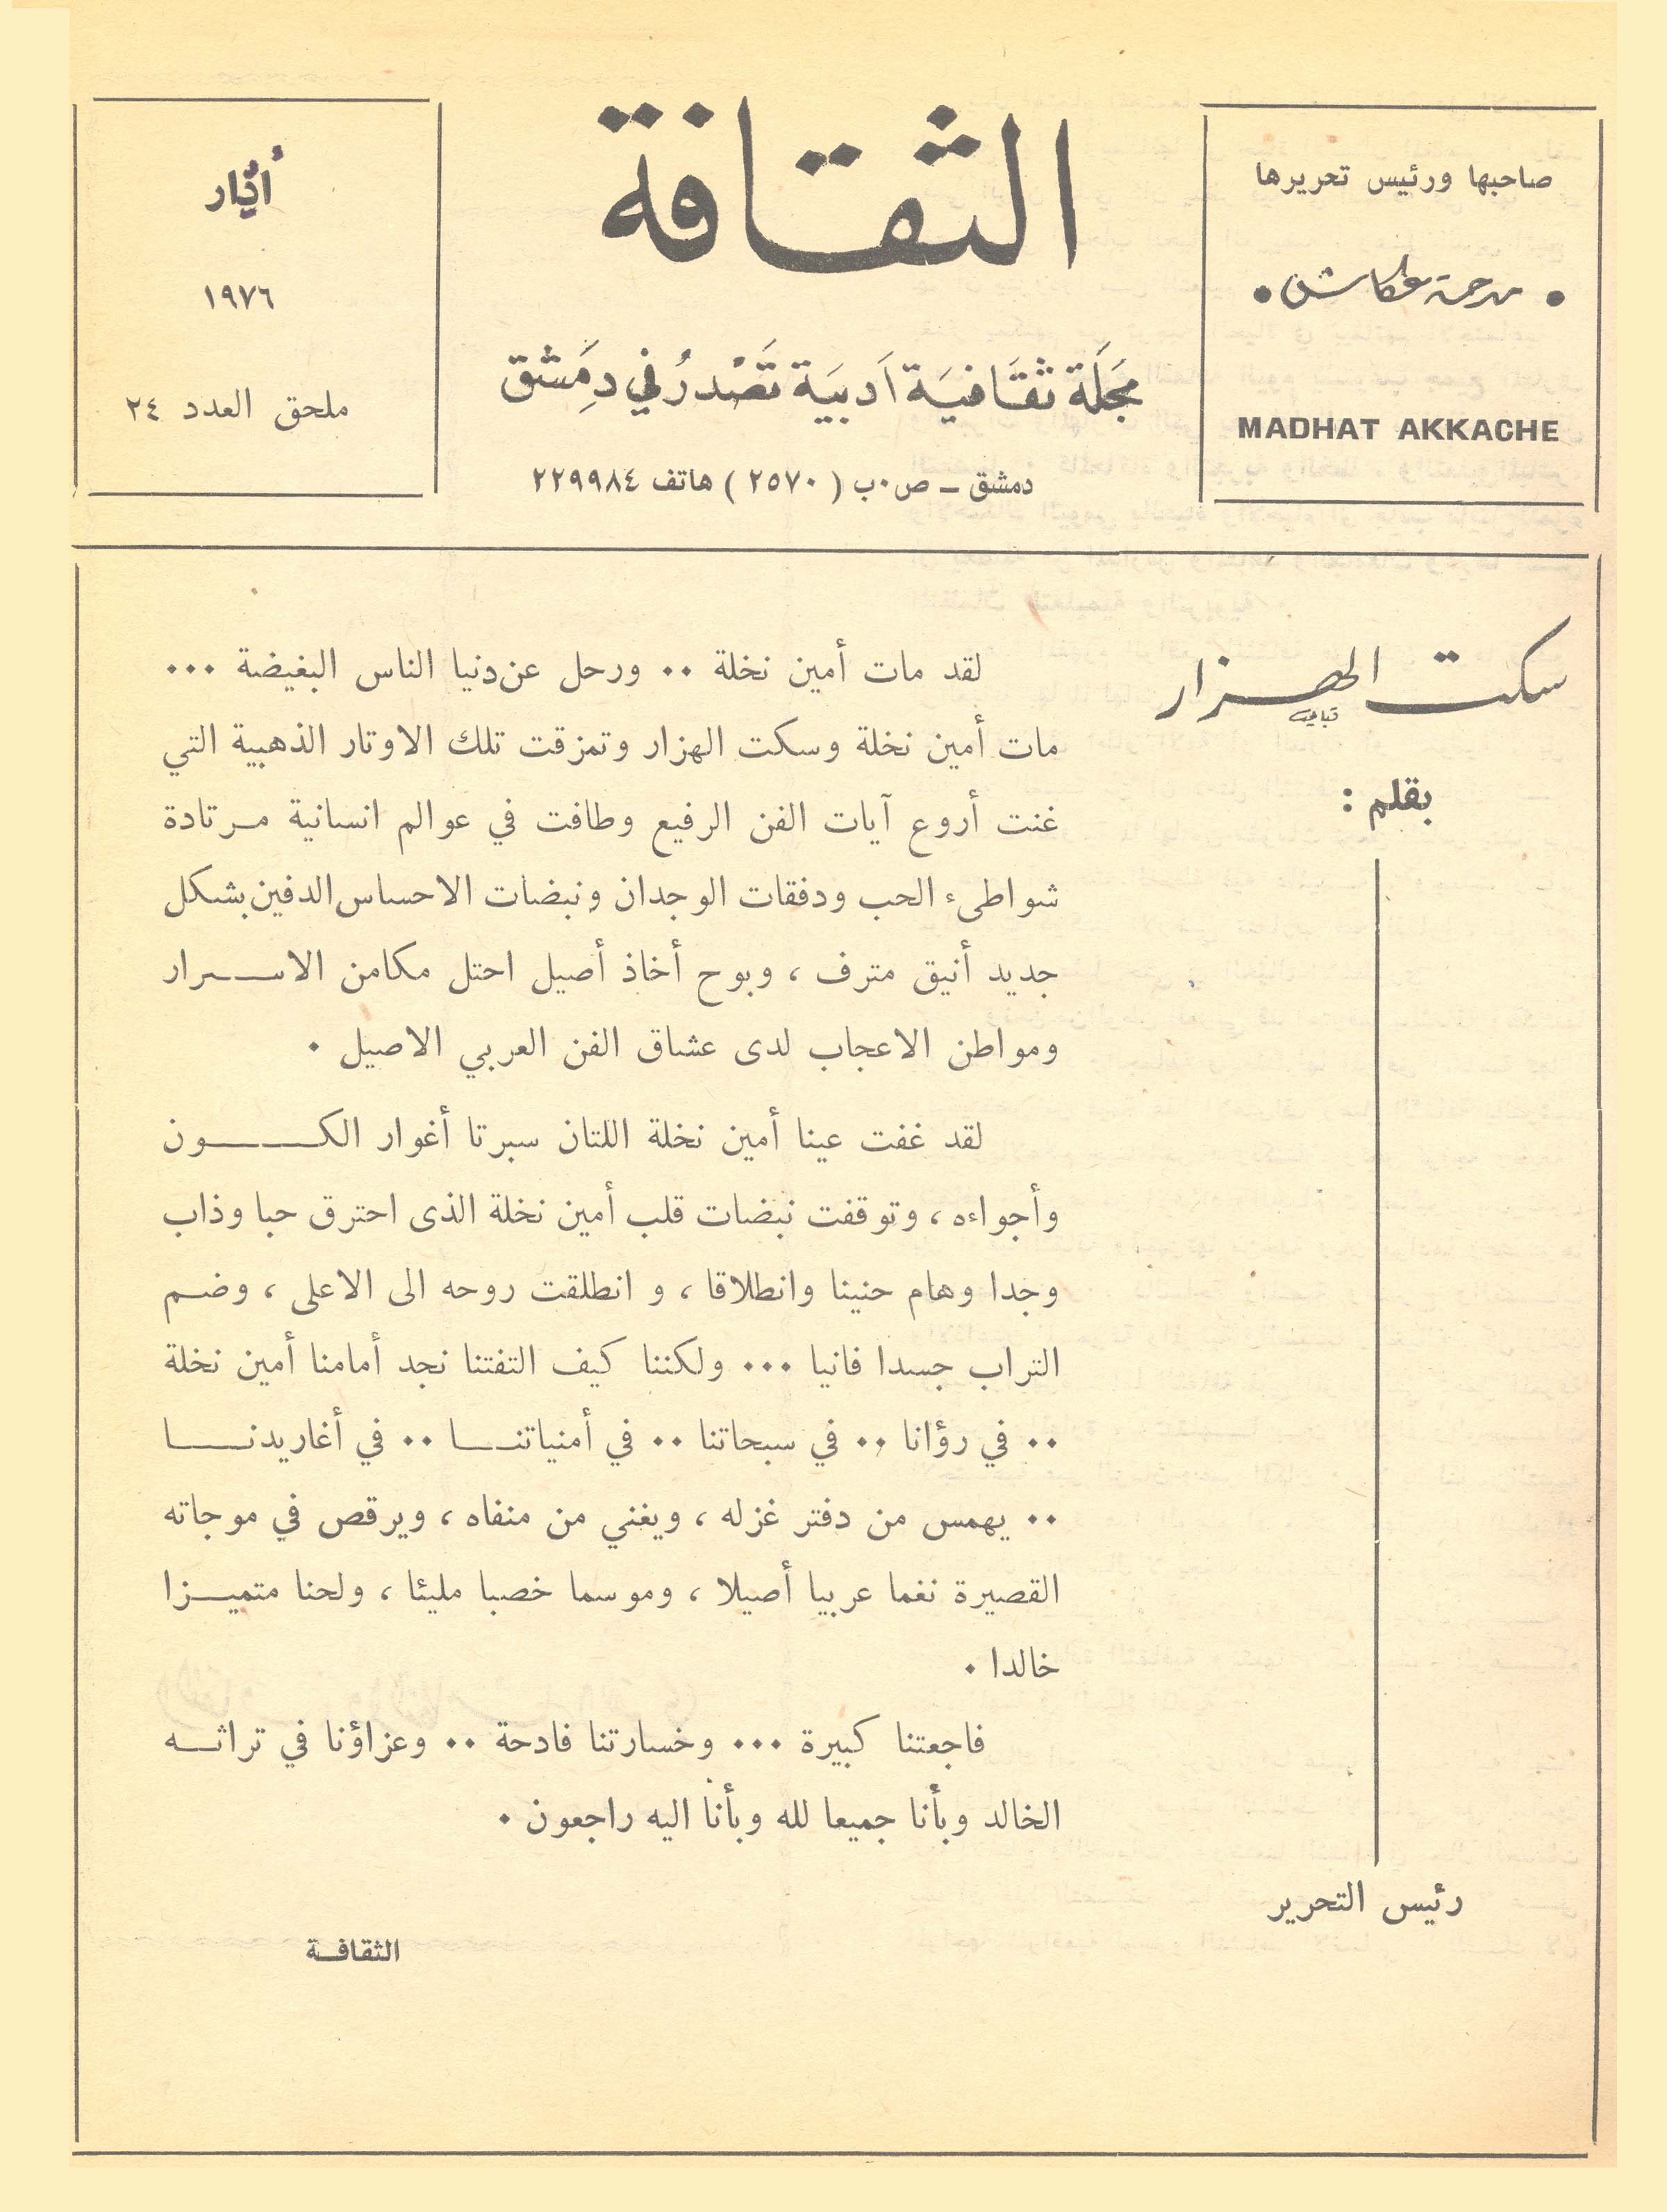 صاحبها ورئيس تحريرها
• مدحة عكاش •
MADHAT AKKACHE
الثقافة
مَجَلَة ثقَافيَة اَدبيَة تَصْدرُ في دِمَشق
دمشق ــ ص٠ب ( ٢٥٧٠ ) هاتف ٢٢٩٩٨٤
أيّار
١٩٧٦
ملحق العدد ٢٤
سكت الهزار
بقلم :
رئيس التحرير
لقد مات أمين نخلة ٠٠ ورحل عن دنيا الناس البغيضة ٠٠٠
مات أمين نخلة وسكت الهزار وتمزقت تلك الاوتار الذهبية التي
غنت أروع آيات الفن الرفيع وطافت في عوالم انسانية مـرتادة
شواطىء الحب ودفقات الوجدان ونبضات الاحساس الدفين بشكل
جديد أنيق مترف ، وبوح أخاذ أصيل احتل مكامن الاســـرار
ومواطن الاعجاب لدى عشاق الفن العربي الاصيل ٠
لقد غفت عينا أمين نخلة اللتان سبرتا أغوار الكــــــون
وأجواءه ، وتوقفت نبضات قلب أمين نخلة الذى احترق حبا وذاب
وجدا وهام حنينا وانطلاقا ، و انطلقت روحه الى الاعلى ، وضـم
التراب جسدا فانيا ٠٠٠ ولكننا كيف التفتنا نجد أمامنا أمين نخلة
٠٠ في رؤانا ٠٠ في سبحاتنا ٠٠ في أمنياتنـــا ٠٠ في أغاريدنــــا
٠٠ يهمس من دفتر غزله ، ويغني من منفاه ، ويرقص في موجاته
القصيرة نغما عربيا أصيلا ، وموسما خصبا مليئا ، ولحنا متميـــزا
خالدا ٠
فاجعتنا كبيرة ٠٠٠ وخسارتنا فادحة ٠٠ وعزاؤنا في تراثــه
الخالد وبأنا جميعا لله وبأنا اليه راجعون ٠
الثقافـة